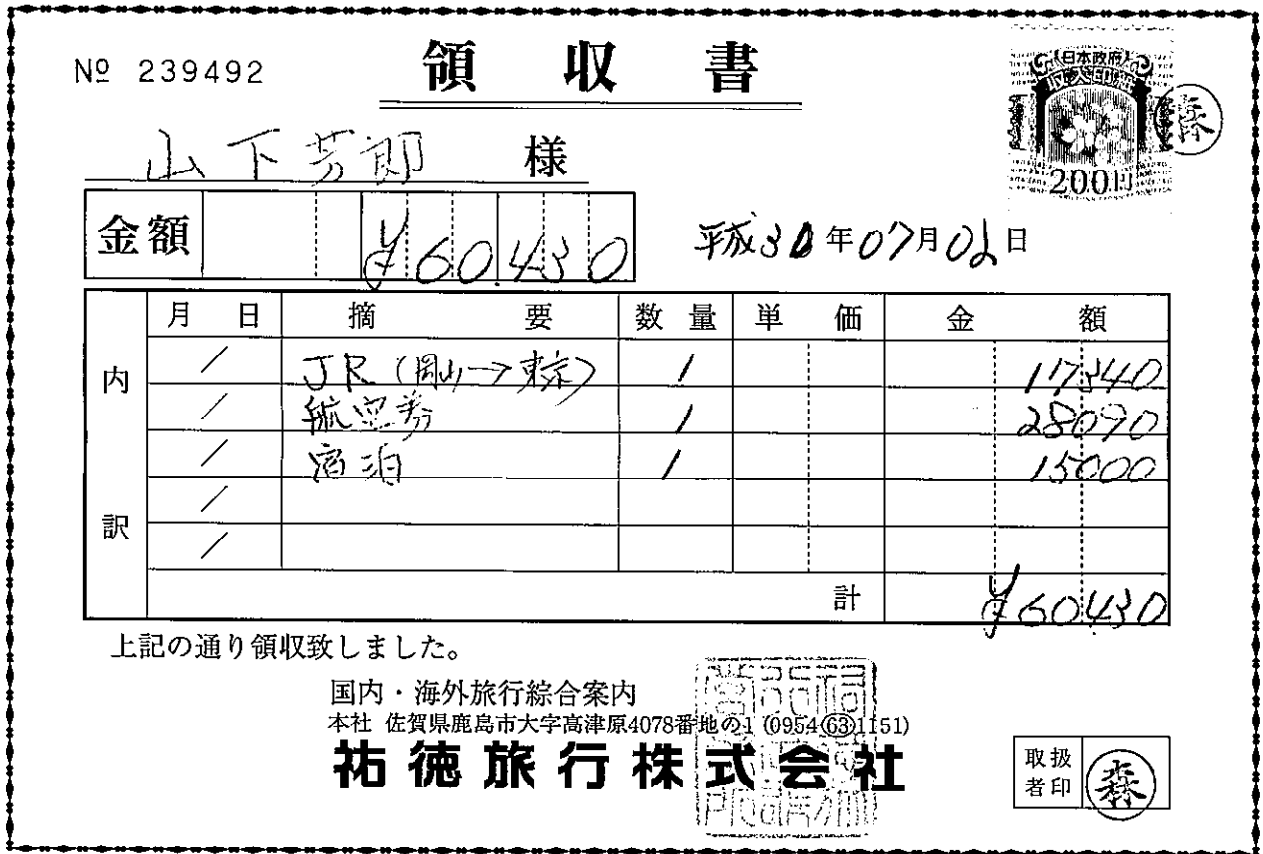 № 239492
領収書
山下芳郎 様
日本政府
200円
森
金額 ¥60,430
平成30年07月02日
内訳
月 日 摘 要 数 量 単 価 金 額
/ JR (岡山→東京) / 17340
/ 航空券 / 28090
/ 宿泊 / 15000
/
/
計 ¥60,430
上記の通り領収致しました。
国内・海外旅行綜合案内
本社 佐賀県鹿島市大字高津原4078番地の1 (0954㊿1151)
祐徳旅行株式会社
取扱者印 森